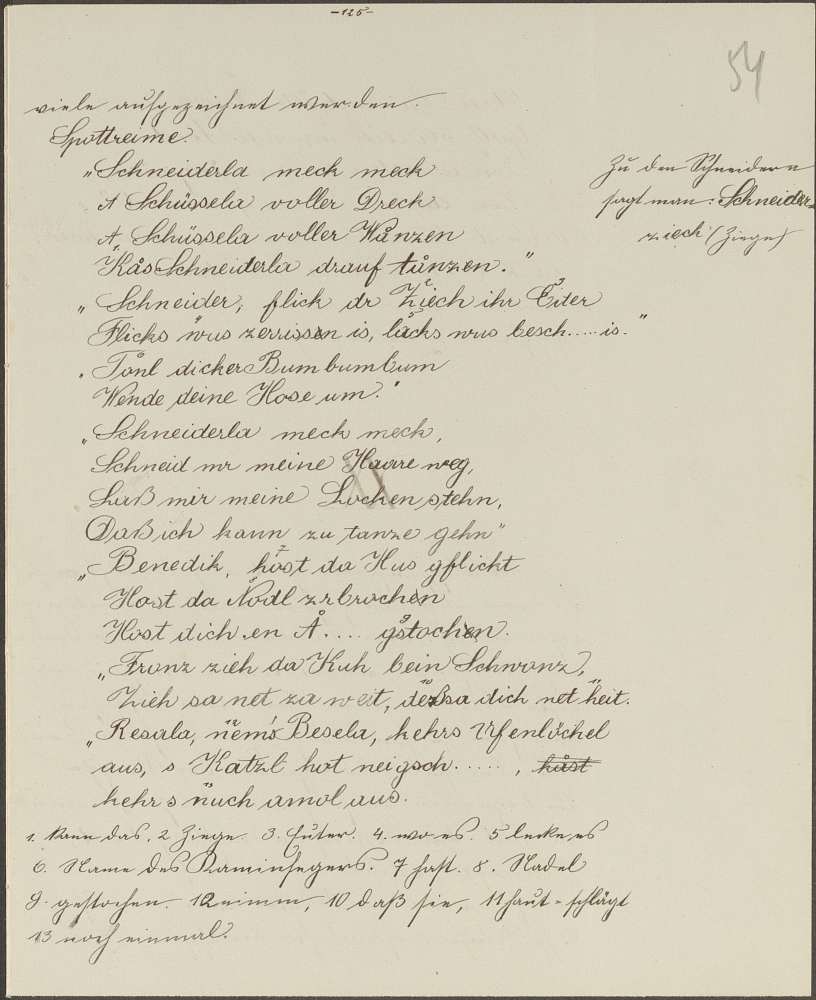 -125-
54
viele aufgezeichnet werden.
Spottreime.
"Schneiderla meck meck
A Schüssela voller Dreck
A Schüssela voller Wånzen
Kås Schneiderla drauf tånzen."
Zu den Schneidern
sagt man: Schneider-
ziech (Ziege)
"Schneider, flick dr Ziech ihr Eiter
Flicks wus zerrissen is, låcks wus besch.....is."
"Tonl dicker Bumbumbum
Wende deine Hose um."
"Schneiderla meck meck,
Schneid mr meine Haare weg,
Laß mir meine Locken stehn,
Daß ich kann zu tanze gehn"
"Benedik, host da Hus gflicht
Host da Nodl zrbrochen
Host dich en Å.... gstochen.
"Franz zieh da Kuh bein Schwanz,
Zieh sa net za weit, deßsa dich net heit.
"Resala, nem's Besela, kehrs Ufenlöchel
aus, s Katzl hot neigsch....., håst
kehrs nuch amol aus.
1. Kann das, 2 Ziege. 3. Euter. 4. wo es. 5 leckes
6. Name des Kaminfegers. 7 hast. 8. Nadel
9. gestochen. 12 nimm, 10 daß sie, 11 haut = schlägt
13 noch einmal.